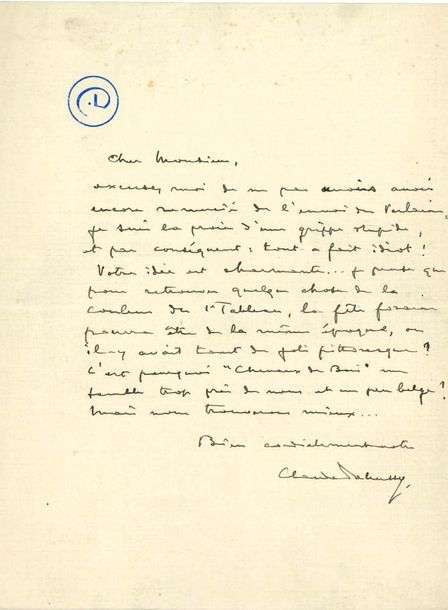 Cher Monsieur,
excusez moi de ne pas avoir
encore remercié de l'envoi de Verlaine,
je suis la proie d'une grippe stupide,
et par conséquent : tout a fait idiot!
Votre idée est charmante... je pense que
pour retrouver quelque chose de la
couleur du 1er Tableau, la fête foraine
pourra être de la même époque, où
il y avait tant de joli pittoresque?
C'est pourquoi "Chevaux de Bois" me
semble trop près de nous et un peu belge?
Mais nous trouverons mieux...
Bien cordialement votre
Claude Debussy.